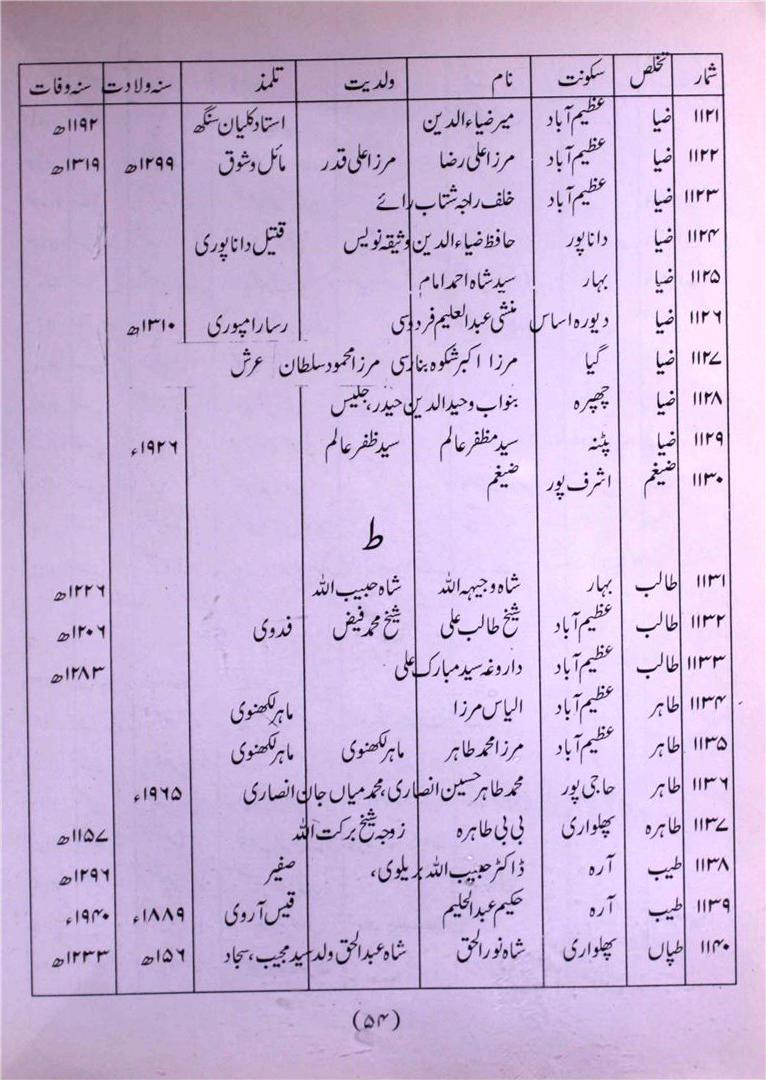 شمار تخلص سکونت نام ولدیت تلمذ سنہ ولادت سنہ وفات
۱۱۲۱ ضیا عظیم آباد میر ضیاء الدین استاد کلیان سنگھ ۱۱۹۲ھ
۱۱۲۲ ضیا عظیم آباد مرزا علی رضا مرزا علی قدر مائل و شوق ۱۲۹۹ھ ۱۳۱۹ھ
۱۱۲۳ ضیا عظیم آباد خلف راجہ شتاب رائے
۱۱۲۴ ضیا داناپور حافظ ضیاء الدین وثیقہ نویس قتیل داناپوری
۱۱۲۵ ضیا بہار سید شاہ احمد امام
۱۱۲۶ ضیا دیورہ اساس منشی عبدالعلیم فردوسی رسا رامپوری ۱۳۱۰ھ
۱۱۲۷ ضیا گیا مرزا اکبر شکوہ بنارسی مرزا محمود سلطان عرش
۱۱۲۸ ضیا چھپرہ بنواب وحید الدین حیدر، جلیس
۱۱۲۹ ضیا پٹنہ سید مظفر عالم سید ظفر عالم ۱۹۲۶ء
۱۱۳۰ ضیغم اشرف پور ضیغم
ط
۱۱۳۱ طالب بہار شاہ وجیہہ اللہ شاہ حبیب اللہ ۱۲۲۶ھ
۱۱۳۲ طالب عظیم آباد شیخ طالب علی شیخ محمد فیض فدوی ۱۲۰۶ھ
۱۱۳۳ طالب عظیم آباد داروغہ سید مبارک علی ۱۲۸۳ھ
۱۱۳۴ طاہر عظیم آباد الیاس مرزا ماہر لکھنوی
۱۱۳۵ طاہر عظیم آباد مرزا محمد طاہر ماہر لکھنوی ماہر لکھنوی
۱۱۳۶ طاہر حاجی پور محمد طاہر حسین انصاری، محمد میاں جان انصاری ۱۹۶۵ء
۱۱۳۷ طاہرہ پھلواری بی بی طاہرہ زوجہ شیخ برکت اللہ ۱۱۵۷ھ
۱۱۳۸ طیب آرہ ڈاکٹر حبیب اللہ بریلوی، صفیر ۱۲۹۶ھ
۱۱۳۹ طیب آرہ حکیم عبدالحلیم قیس آروی ۱۸۸۹ء ۱۹۴۰ء
۱۱۴۰ طپاں پھلواری شاہ نور الحق شاہ عبدالحق ولد سید مجیب، سجاد ۱۵۶ھ ۱۲۳۳ھ
(۵۴)